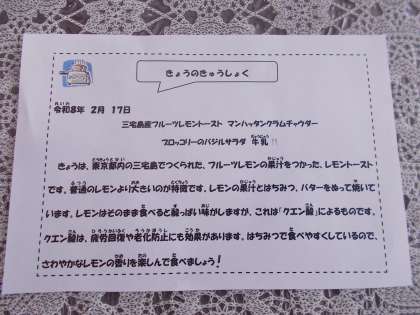 きょうのきゅうしょく
令和8年 2月 17日
三宅島産フルーツレモントースト マンハッタンクラムチャウダー
ブロッコリーのバジルサラダ 牛乳
きょうは、東京都内の三宅島でつくられた、フルーツレモンの果汁をつかった、レモントースト
です。普通のレモンより大きいのが特徴です。レモンの果汁とはちみつ、バターをぬって焼いて
います。レモンはそのまま食べると酸っぱい味がしますが、これは「クエン酸」によるものです。
クエン酸は、疲労回復や老化防止にも効果があります。はちみつで食べやすくしているので、
さわやかなレモンの香りを楽しんで食べましょう！